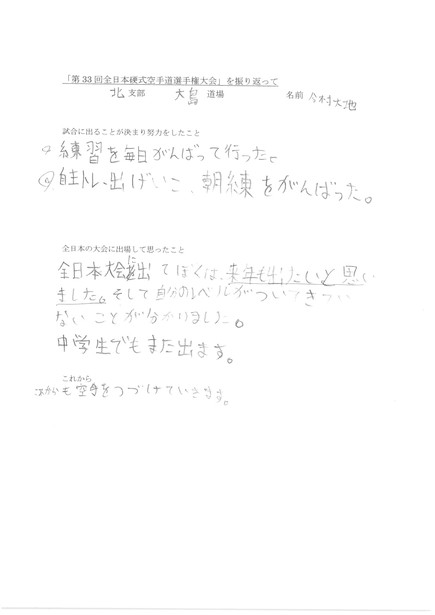 「第33回全日本硬式空手道選手権大会」を振り返って
北 支部 大島 道場 名前 今村大地
試合に出ることが決まり努力をしたこと
練習を毎日がんばって行った。
自主トレ、出げいこ、朝練をがんばった。
全日本の大会に出場して思ったこと
全日本大会に出てぼくは、来年も出たいと思い
ました。そして自分のレベルがついてきてい
ないことが分かりました。
中学生でもまた出ます。
これから
これからも空手をつづけていきます。